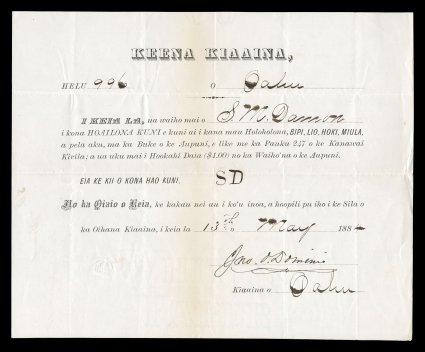 KEENA KIAAINA,
HELU 996 O Oahu
I KEIA LA, ua waiho mai o S. M. Damon
i kona HOAILONA KUNI e kuni ai i kana mau Holoholona, BIPI, LIO, HOKI, MIULA,
a pela aku, ma ka Buke o ke Aupuni, e like me ka Pauku 247 o ke Kanawai
Kivila; a ua uku mai i Hookahi Dala ($1.00) no ka Waiho'na o ke Aupuni.
EIA KE KII O KONA HAO KUNI, SD
No ka Oiaio o Keia, ke kakau nei au i ko'u inoa, a hoopili pu iho i ke Sila o
ka Oihana Kiaaina, i keia la 13th o May 188
Jno. O. Dominis
Kiaaina o Oahu